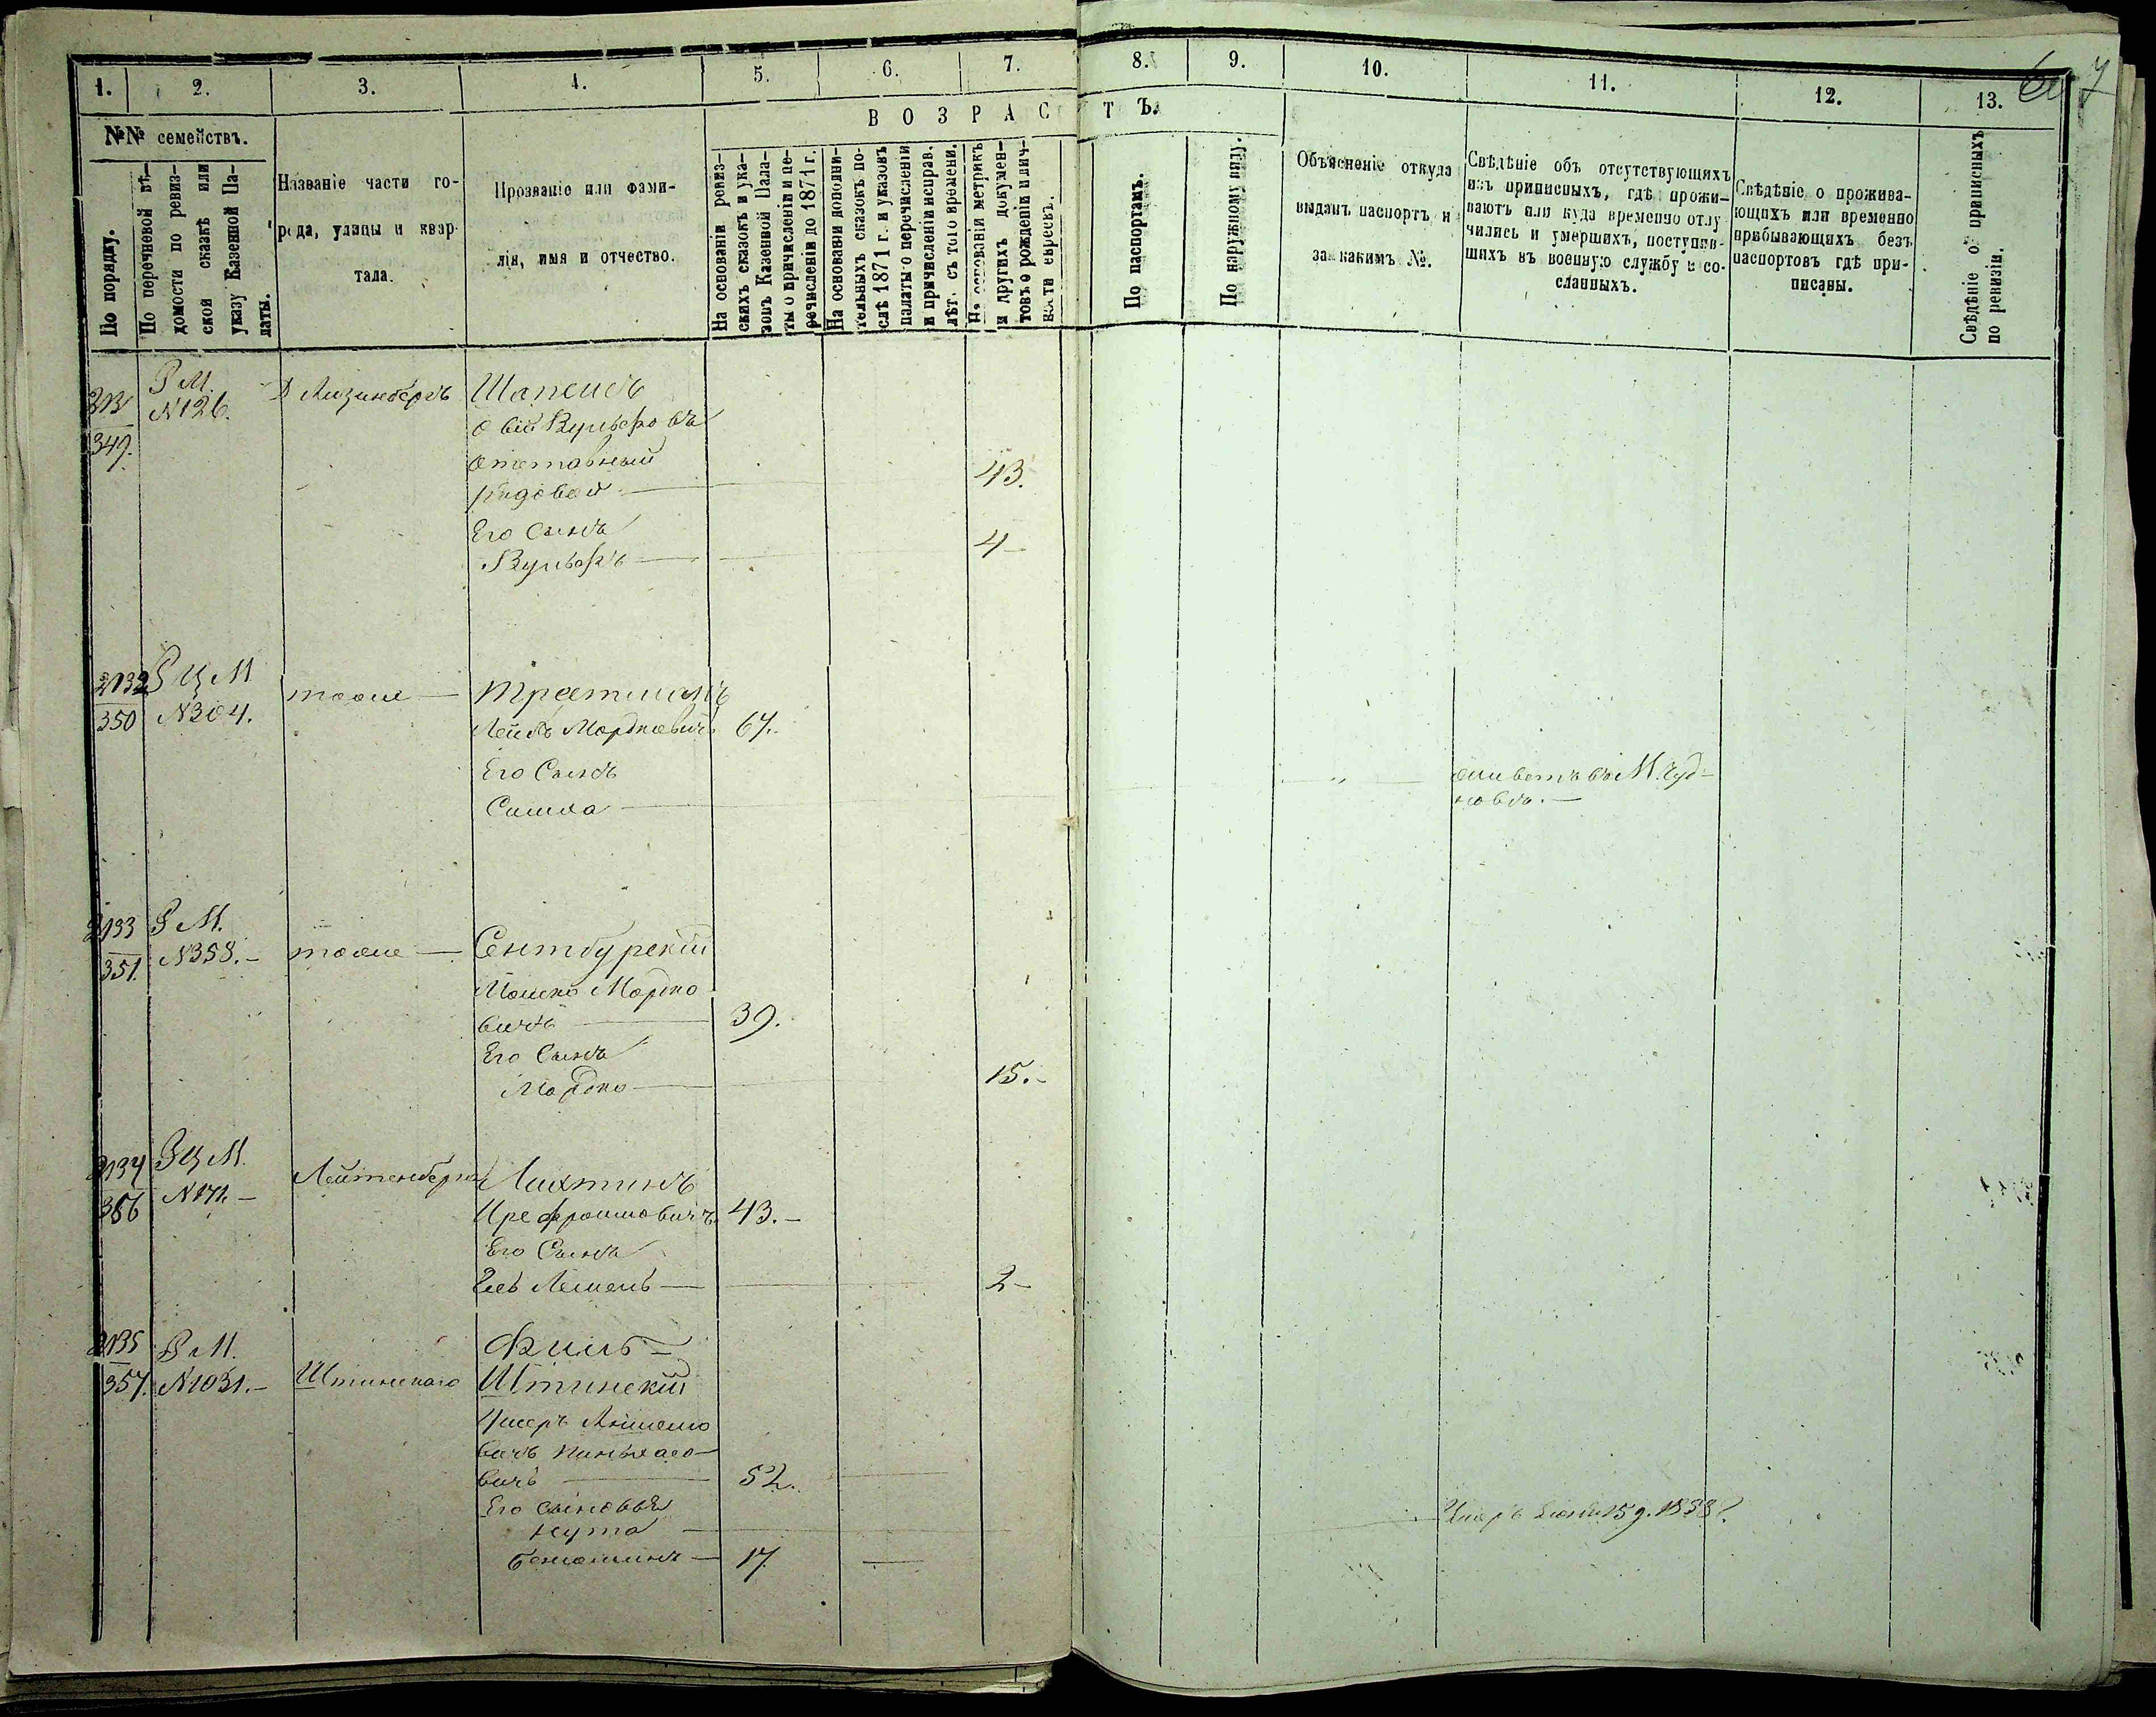 1. 2. 3. 4. 5. 6. 7. 8. 9. 10. 11. 12. 13.
В О З Р А С Т Ъ.
№№ семействъ.
По порядку.
По перечневой вѣ-
домости по ревиз-
ской сказкѣ или
указу Казенной Па-
латы.
Названіе части го-
рода, улицы и квар-
тала.
Прозваніе или фами-
лія, имя и отчество.
На основаніи ревиз-
скихъ сказокъ и ука-
зовъ Казенной Пала-
ты о причисленіи и пе-
речисленіи до 1871 г.
На основаніи дополни-
тельныхъ сказокъ по-
слѣ 1871 г. и указовъ
палаты о перечисленіи
и причисленіи исправ.
лѣт. съ того времени.
На основаніи метрикъ
и другихъ докумен-
товъ о рожденіи и лич-
ности евреевъ.
По паспортамъ.
По наружному виду.
Объясненіе откуда
выданъ паспортъ и
за какимъ №.
Свѣдѣніе объ отсутствующихъ
изъ приписныхъ, гдѣ прожи-
ваютъ или куда временно отлу
чились и умершихъ, поступив-
шихъ въ военную службу и со-
сланныхъ.
Свѣдѣніе о прожива-
ющихъ или временно
прибывающихъ безъ
паспортовъ гдѣ при-
писаны.
Свѣдѣніе о приписныхъ
по ревизіи.
349. Р М. №126. Д Лизинберъ
отставный
рядовой 43.
Его Сынъ
Вульфъ 4
2132 350 Р Ц М №304. тоже Тратманъ
Лейбъ Мордковичъ 67.
Его Сынъ
Симха
живетъ въ М. Чуд-
новѣ.
2133 351. Р М. №358. тоже Сентбурскій
Мошко Мордко
вичъ 39.
Его Сынъ
Мордко 15.
2134 356 Р Ц М. №171. Лейтенберга Лихтинъ
43.
Его Сынъ
2
2135 357. Р М. №1031. Штинскаго
Филь-
Штинскій
вичъ Пинхасо-
вичъ 52.
Его сыновья
Нута
Беньяминъ 17